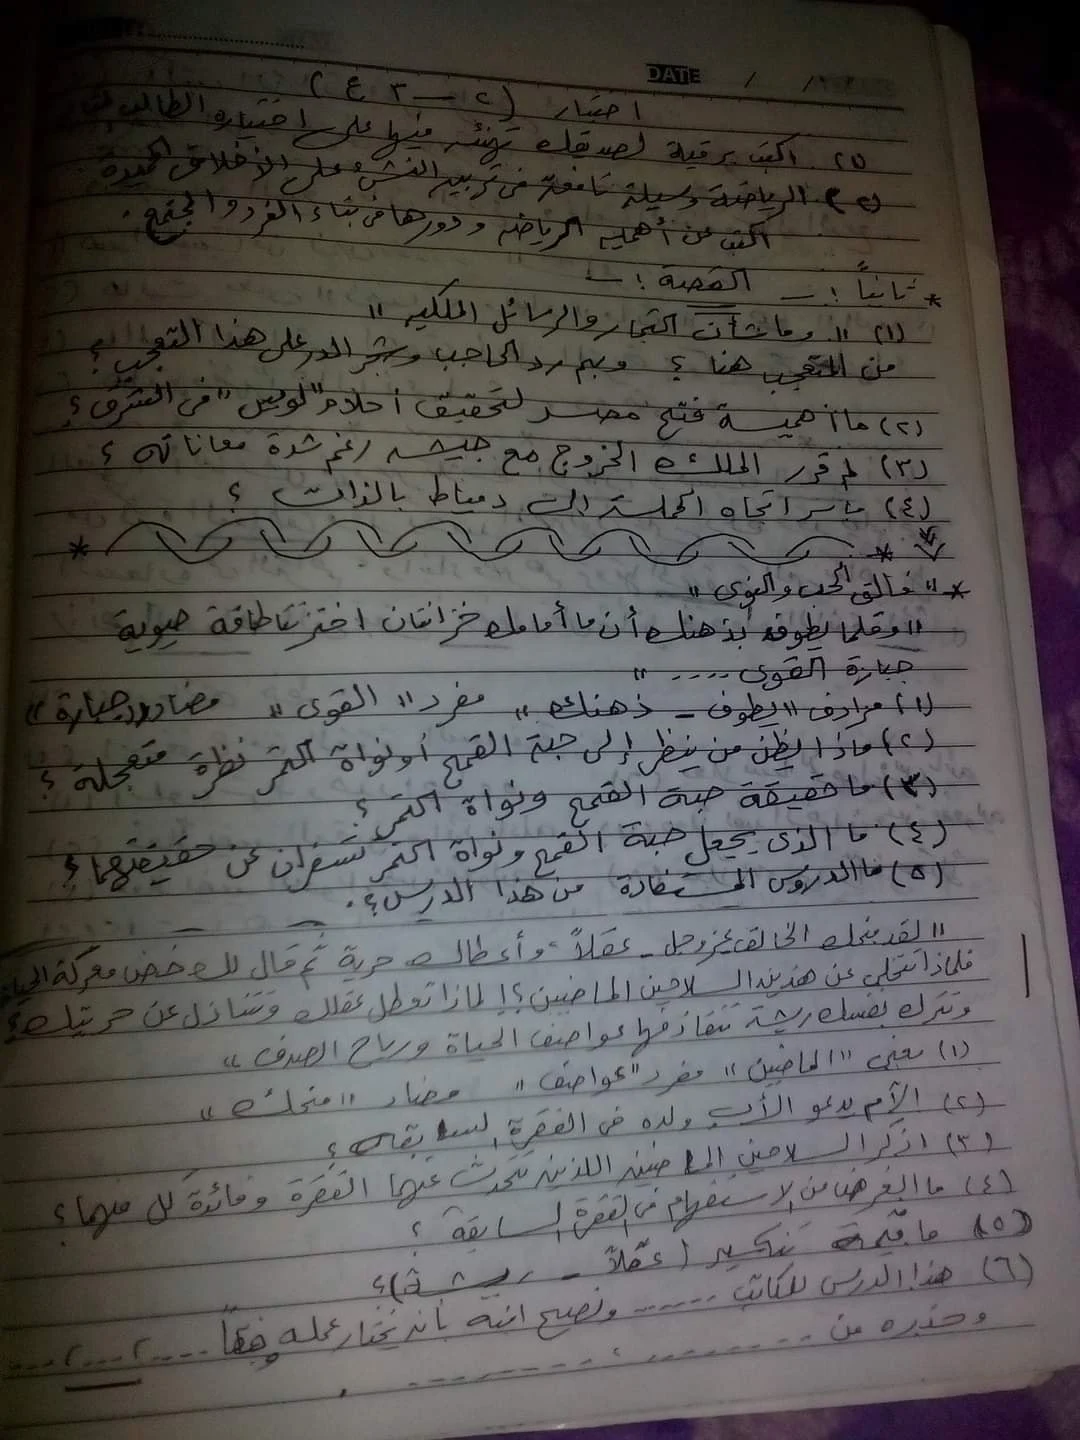 DATE / /
اختبار (٢ – ٣ ع)
(١) اكتب برقية لصديقك تهنئه فيها على اختياره الطالب
(٢) الرياضة وسيلة نافعة فى تربية النشء على الأخلاق الحميدة
اكتب عن أهمية الرياضه ودورها فى بناء الفرد والمجتمع .
* ثانياً : – القصة : –
(١) " وما شأن التجار والرسائل الملكية "
من المتعجب هنا ؟ وبم رد الحاجب وشجر الدر على هذا التعجب ؟
(٢) ما أهمية فتح مصر لتحقيق أحلام "لويس" فى الشرق ؟
(٣) لم قرر الملك الخروج مع جيشه رغم شدة معاناته ؟
(٤) ما سر اتجاه الحملة إلى دمياط بالذات ؟
* " فالق الحب والنوى "
" وقلما يطوف بذهنك أن ما أمامك خزانتان اختزنتا طاقة حيوية
جبارة القوى .... "
(١) مرادف " يطوف – ذهنك " مفرد " القوى " مضاد " جبارة "
(٢) ماذا يظن من ينظر إلى حبة القمح أو نواة التمر نظرة متعجلة ؟
(٣) ما حقيقة حبة القمح ونواة التمر ؟
(٤) ما الذى يجعل حبة القمح ونواة التمر تسفران عن حقيقتهما ؟
(٥) ما الدروس المستفادة من هذا الدرس ؟ .
" لقد منحك الخالق عز وجل – عقلاً وأعطاك حرية ثم قال لك خض معركة الحياة
فلماذا تتخلى عن هذين السلاحين الماضيين ؟! لماذا تعطل عقلك وتتنازل عن حريتك ؟
وتترك نفسك ريشة تتقاذفها عواصف الحياة ورياح الصدف "
(١) معنى " الماضيين " مفرد " عواصف " مضاد " منحك "
(٢) الآم يدعو الأب ولده فى الفقرة السابقة ؟
(٣) اذكر السلاحين الماضيين اللذين تتحدث عنهما الفقرة وفائدة كل منهما ؟
(٤) ما الغرض من الاستفهام فى الفقرة السابقة ؟
(٥) ما قيمة تنكير (عقلاً – ريشة) ؟
(٦) هذا الدرس للكاتب ...... ونصح ابنه بأن يختار عمله وفقاً .... ، ... ، ....
وحذره من ........ ، ........ .